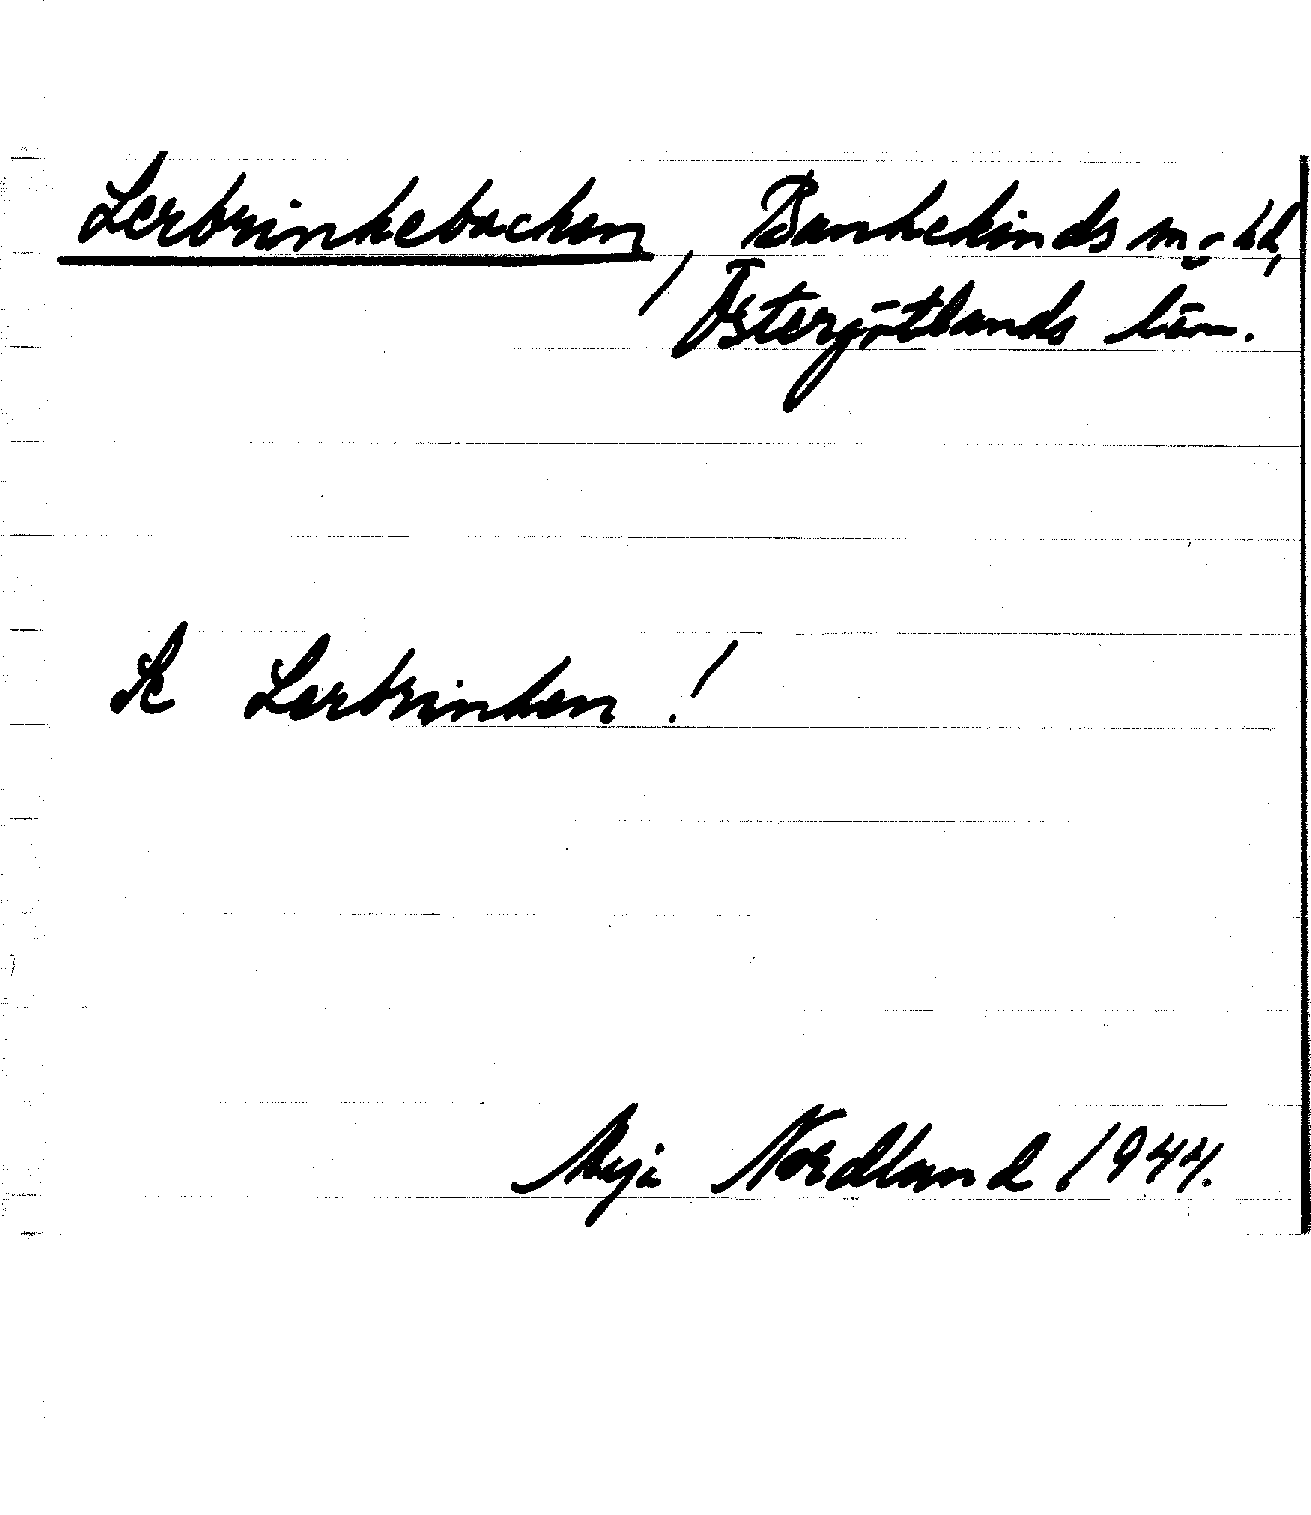 Lerbrinkebacken, Bankekinds sn o hd,
Östergötlands län.
Se Lerbrinken!
Nordland 1944.